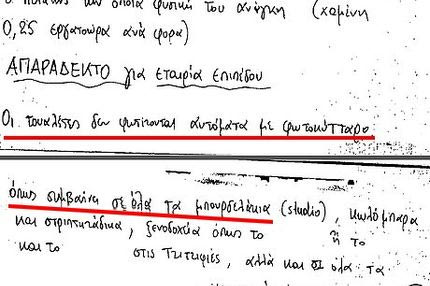 ο πελάτης των οποία φυσική του ανάγκη (χαμένη
0,25 εργατοώρα ανά φορά)
ΑΠΑΡΑΔΕΚΤΟ για εταιρία επιπέδου
Οι τουαλέτες δεν φωτίζονται αυτόματα με φωτοκύτταρο
όπως συμβαίνει σε όλα τα μπουρδελάκια (studio), κωλόμπαρα
και στριπτιτζάδικα, ξενοδοχεία όπως το ή το
και το στις Τζιτζιφιές, αλλά και σε όλα τα